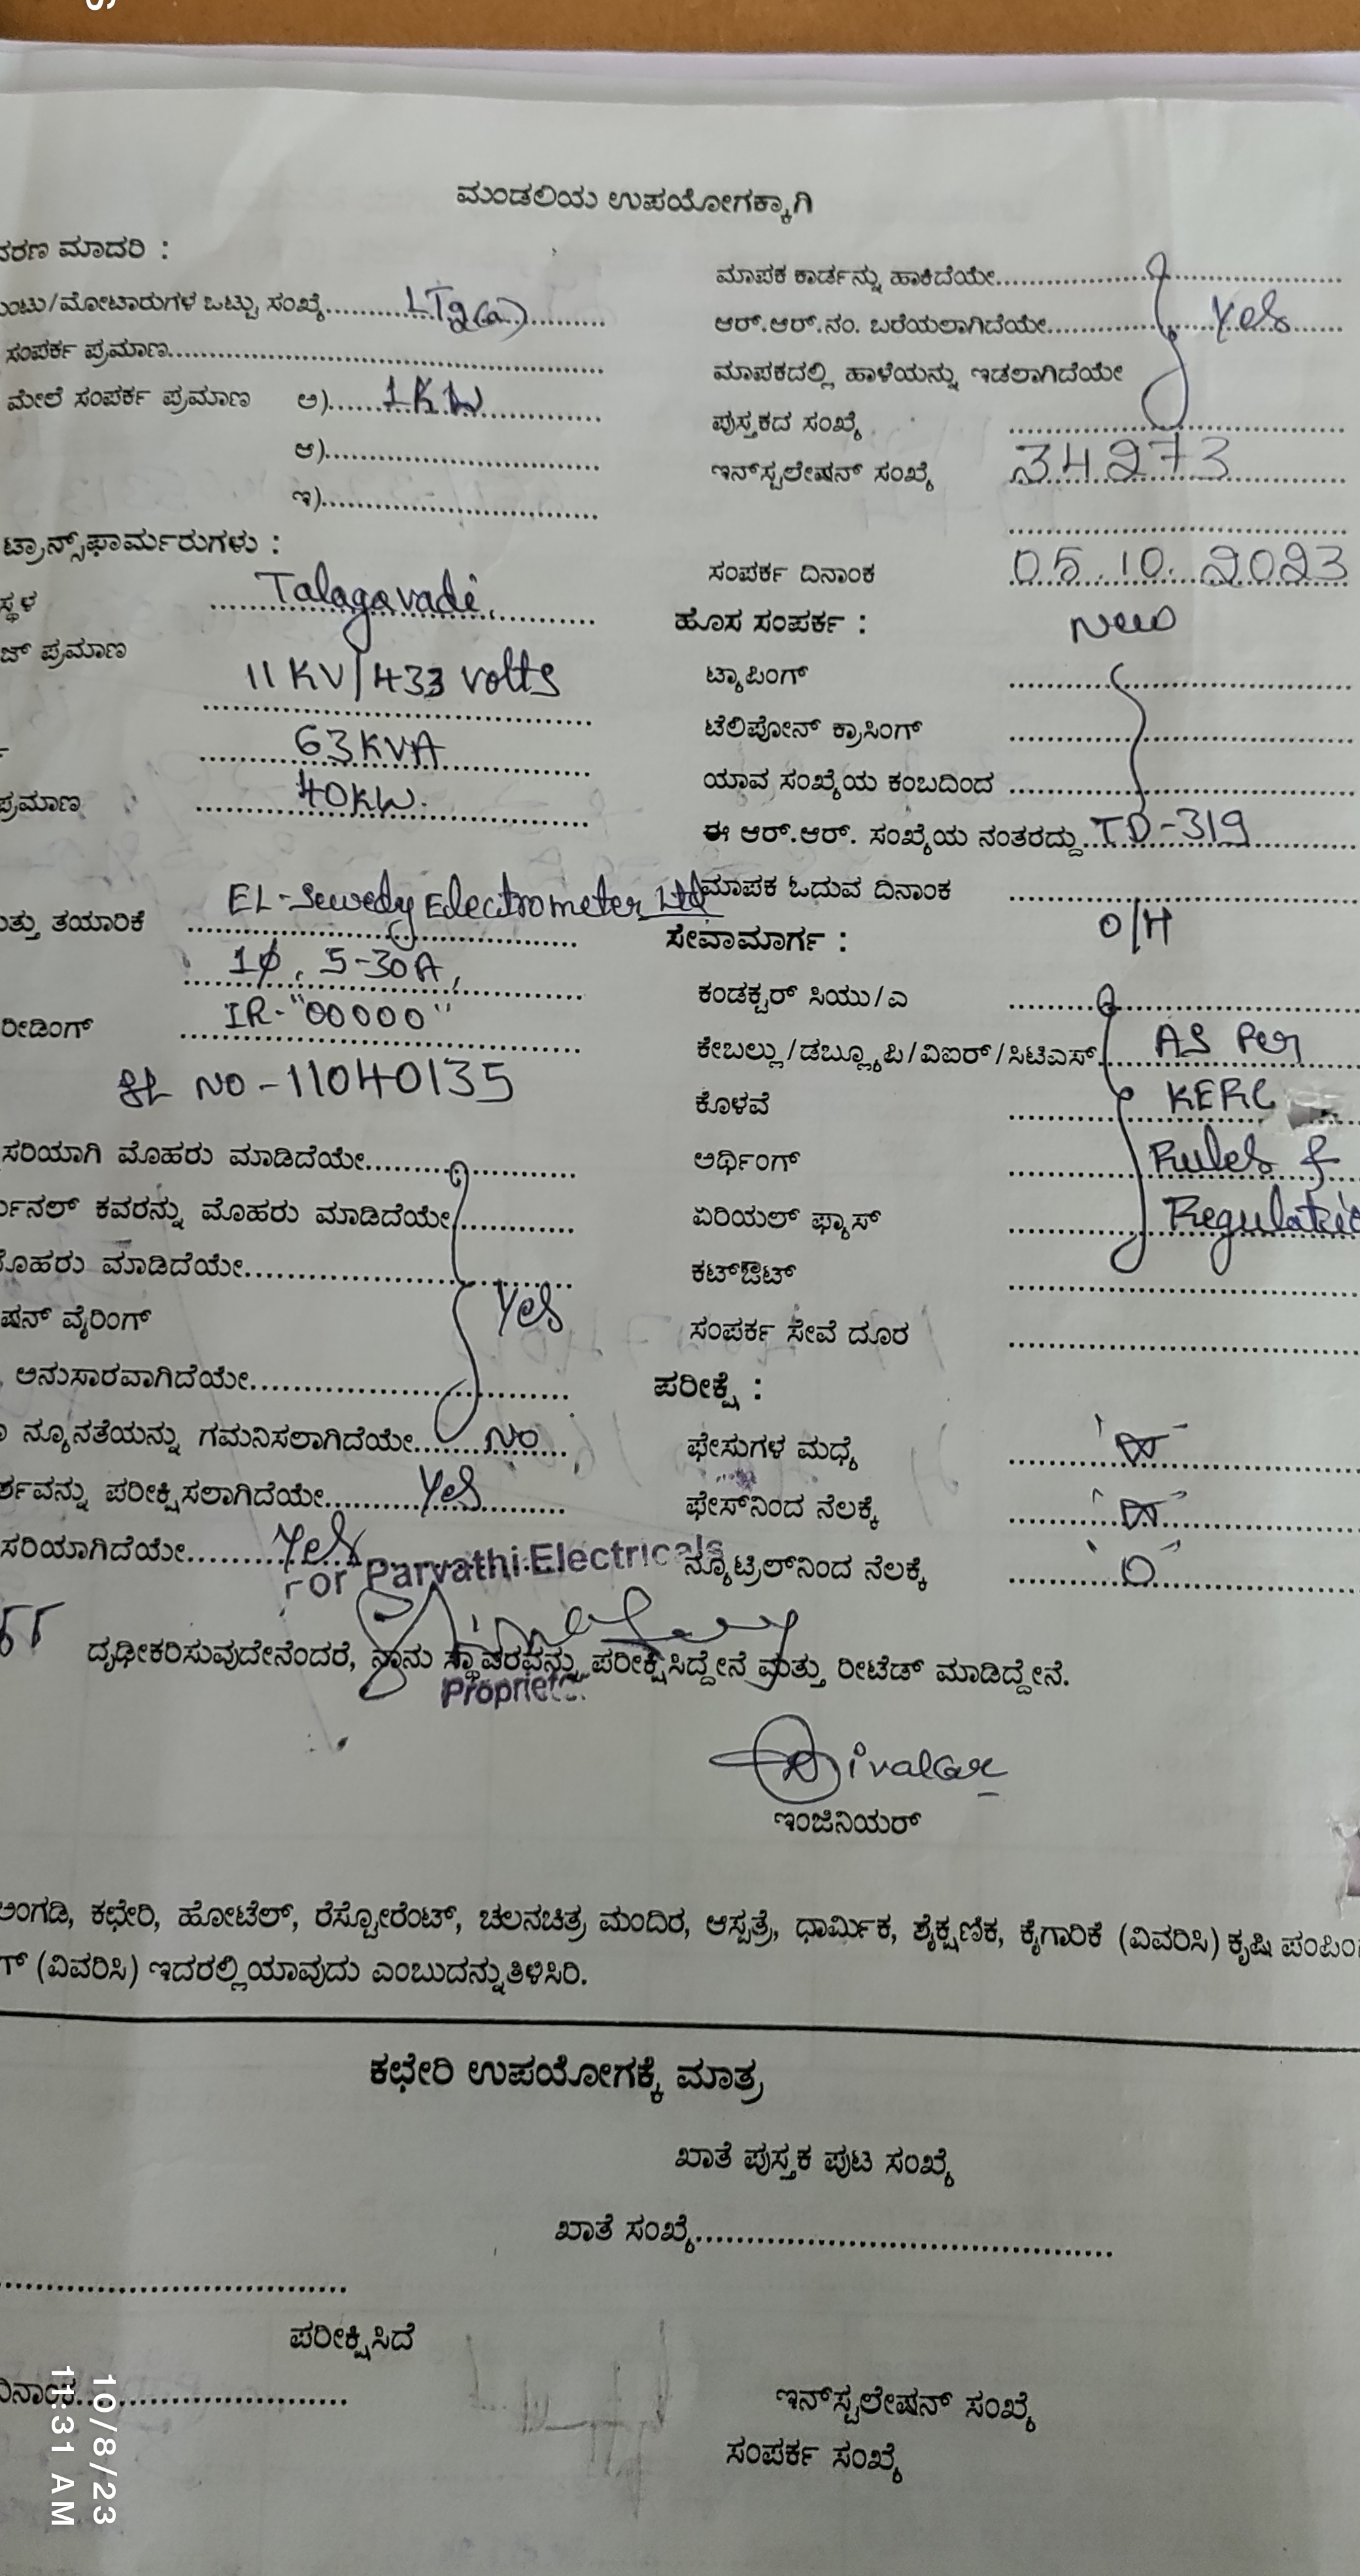 ಮಂಡಲಿಯ ಉಪಯೋಗಕ್ಕಾಗಿ
ಮಾದರಿ :
/ಮೋಟಾರುಗಳ ಒಟ್ಟು ಸಂಖ್ಯೆ............
ಸಂಪರ್ಕ ಪ್ರಮಾಣ............
ಮೇಲೆ ಸಂಪರ್ಕ ಪ್ರಮಾಣ ಅ)......1KW......
ಆ)............
ಇ)............
ಟ್ರಾನ್ಸ್‌ಫಾರ್ಮರುಗಳು :
ಸ್ಥಳ Talagavadi.
ಪ್ರಮಾಣ
11KV/433 volts
63KVA
ಪ್ರಮಾಣ 40KW.
EL-Sewedy Electrometer Ltd
ತಯಾರಿಕೆ
1ϕ, 5-30A,
IR-"00000"
ರೀಡಿಂಗ್
SL NO-11040135
ಸರಿಯಾಗಿ ಮೊಹರು ಮಾಡಿದೆಯೇ............
ಕವರನ್ನು ಮೊಹರು ಮಾಡಿದೆಯೇ............
ಮಾಡಿದೆಯೇ............
Yes
ವೈರಿಂಗ್
ಅನುಸಾರವಾಗಿದೆಯೇ............
ನ್ಯೂನತೆಯನ್ನು ಗಮನಿಸಲಾಗಿದೆಯೇ......No......
ಪರೀಕ್ಷಿಸಲಾಗಿದೆಯೇ......Yes......
ಸರಿಯಾಗಿದೆಯೇ......Yes
ಮಾಪಕ ಕಾರ್ಡನ್ನು ಹಾಕಿದೆಯೇ............
ಆರ್.ಆರ್.ನಂ. ಬರೆಯಲಾಗಿದೆಯೇ......Yes......
ಮಾಪಕದಲ್ಲಿ ಹಾಳೆಯನ್ನು ಇಡಲಾಗಿದೆಯೇ
ಪುಸ್ತಕದ ಸಂಖ್ಯೆ ............
ಇನ್‌ಸ್ಟಲೇಷನ್ ಸಂಖ್ಯೆ 34273
ಸಂಪರ್ಕ ದಿನಾಂಕ 05.10.2023
ಹೊಸ ಸಂಪರ್ಕ : New
ಟ್ಯಾಪಿಂಗ್ ............
ಟೆಲಿಪೋನ್ ಕ್ರಾಸಿಂಗ್ ............
ಯಾವ ಸಂಖ್ಯೆಯ ಕಂಬದಿಂದ ............
ಈ ಆರ್.ಆರ್. ಸಂಖ್ಯೆಯ ನಂತರದ್ದು....TD-319......
ಮಾಪಕ ಓದುವ ದಿನಾಂಕ ............
ಸೇವಾಮಾರ್ಗ : O/H
ಕಂಡಕ್ಟರ್ ಸಿಯು/ಎ ............
ಕೇಬಲ್ಲು/ಡಬ್ಲ್ಯೂಪಿ/ವಿಐರ್/ಸಿಟಿಎಸ್.... As Per
ಕೊಳವೆ KERC
ಅರ್ಥಿಂಗ್ Rules &
ಏರಿಯಲ್ ಫ್ಯಾಸ್
ಕಟ್‌ಔಟ್ ............
ಸಂಪರ್ಕ ಸೇವೆ ದೂರ ............
ಪರೀಕ್ಷೆ :
ಫೇಸುಗಳ ಮಧ್ಯೆ ............
ಫೇಸ್‌ನಿಂದ ನೆಲಕ್ಕೆ ............
ನ್ಯೂಟ್ರಿಲ್‌ನಿಂದ ನೆಲಕ್ಕೆ ............
For Parvathi Electricals
ದೃಢೀಕರಿಸುವುದೇನೆಂದರೆ, ನಾನು ಸ್ಥಾವರವನ್ನು ಪರೀಕ್ಷಿಸಿದ್ದೇನೆ ಮತ್ತು ರೀಟೆಡ್ ಮಾಡಿದ್ದೇನೆ.
ಇಂಜಿನಿಯರ್
ಅಂಗಡಿ, ಕಛೇರಿ, ಹೋಟೆಲ್, ರೆಸ್ಟೋರೆಂಟ್, ಚಲನಚಿತ್ರ ಮಂದಿರ, ಆಸ್ಪತ್ರೆ, ಧಾರ್ಮಿಕ, ಶೈಕ್ಷಣಿಕ, ಕೈಗಾರಿಕೆ (ವಿವರಿಸಿ) ಕೃಷಿ
(ವಿವರಿಸಿ) ಇದರಲ್ಲಿ ಯಾವುದು ಎಂಬುದನ್ನು ತಿಳಿಸಿರಿ.
ಕಛೇರಿ ಉಪಯೋಗಕ್ಕೆ ಮಾತ್ರ
ಖಾತೆ ಪುಸ್ತಕ ಪುಟ ಸಂಖ್ಯೆ
ಖಾತೆ ಸಂಖ್ಯೆ............
ಪರೀಕ್ಷಿಸಿದೆ
ಇನ್‌ಸ್ಟಲೇಷನ್ ಸಂಖ್ಯೆ
ಸಂಪರ್ಕ ಸಂಖ್ಯೆ
10/8/23
11:31 AM